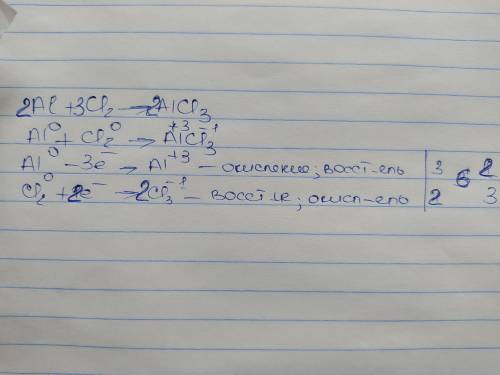 2Al + 3Cl₂ → 2AlCl₃
Al⁰ + Cl₂⁰ → Al⁺³Cl₃⁻¹
Al⁰ − 3e⁻ → Al⁺³ – окисление; восст-ель | 3 6 2
Cl₂⁰ + 2e⁻ → 2Cl₃⁻¹ – восст-ие; окисл-ель | 2 3